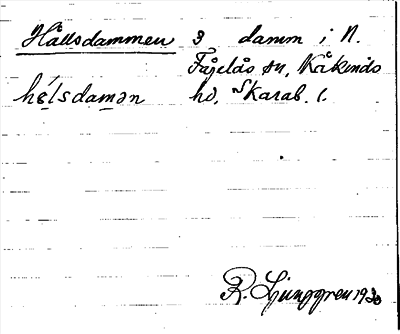 Hållsdammen 3 damm i N.
Fågelås sn, Kåkinds
hd, Skarab. l.
R. Ljunggren 1930